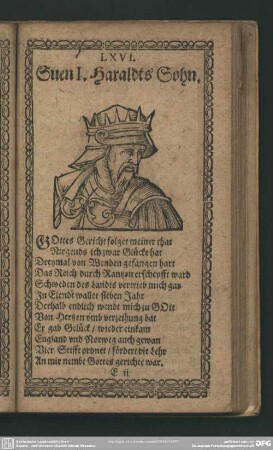 LXVI.
Suen I. Haraldts Sohn.
GOttes Gericht folget meiner that
Nirgends ich zwar Glücke hat
Dreymal von Wenden gefangen hart
Das Reich durch Rantzon erschepfft ward
Schweden des Landts vertrieb mich gar
In Elendt wallet sieben Jahr
Derhalb endlich wendt mich zu GOtt
Von Hertzen umb verzeihung bat
Er gab Gelück / wieder einkam
England und Norweg auch gewan
Vier Stifft ordnet / fördert die Lehr
An mir nembt Gottes gerichte war.
E ij